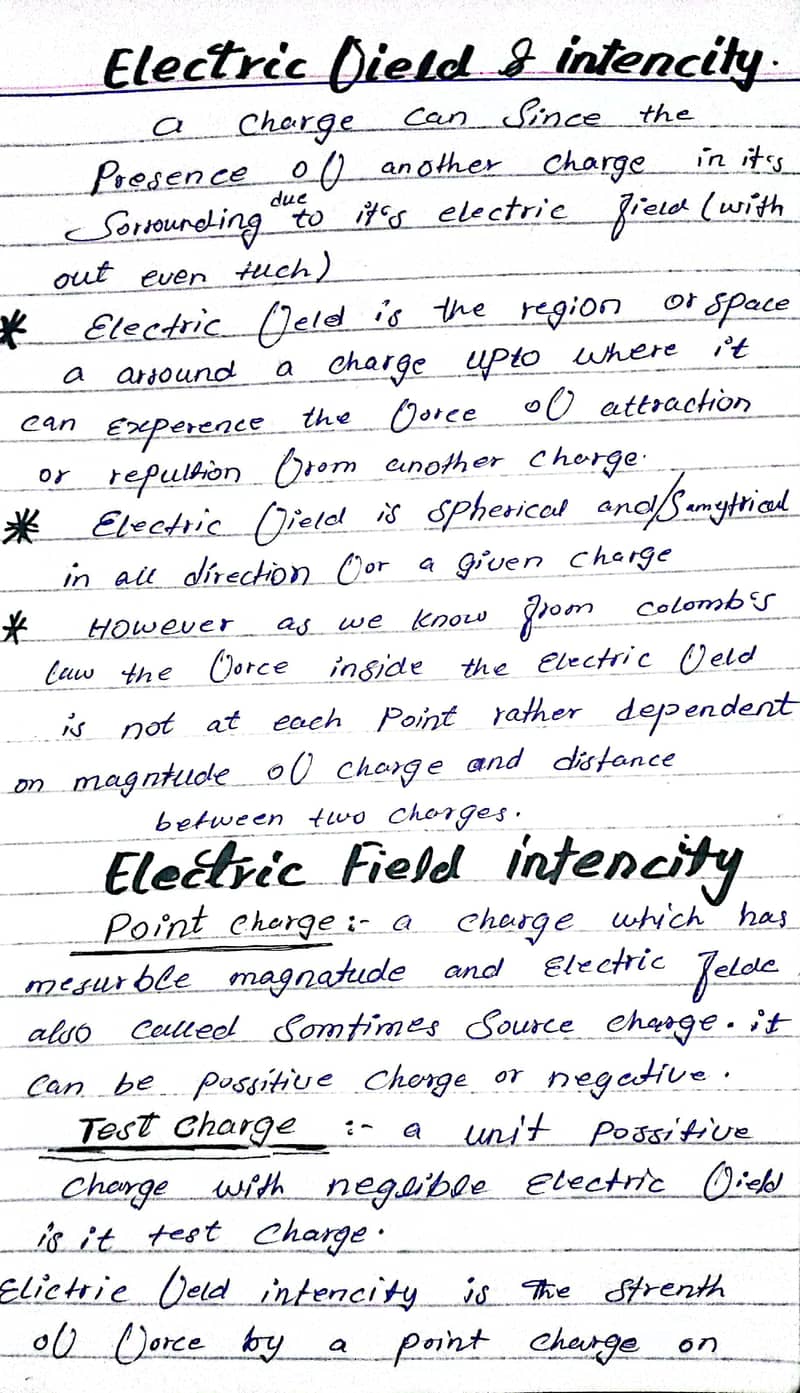 Electric Field & intencity.
a charge can Since the
Presence of another charge in it's
Sorrounding due to it's electric field (with
out even tuch)
* Electric feld is the region or space
a arround a charge upto where it
can experence the force of attraction
or repultion from another charge.
* Electric field is spherical and/Samytrical
in all direction for a given charge
* However as we know from colomb's
law the force inside the Electric feld
is not at each point rather dependent
on magntude of charge and distance
between two charges.
Electric Field intencity
Point charge :- a charge which has
mesurble magnatude and Electric felde
also called Somtimes Source charge. it
can be possitive charge or negative.
Test charge :- a unit possitive
charge with neglible Electric field
is it test charge.
Elictric feld intencity is the strenth
of force by a point charge on